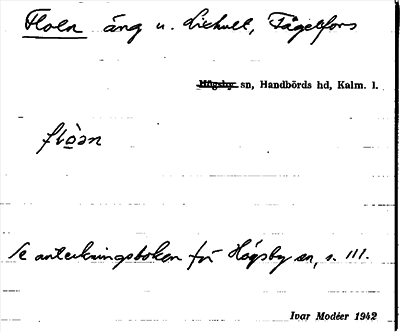 Floen äng u. Liekull, Fågelfors
Högsby sn, Handbörds hd, Kalm. l.
flòən
Se anteckningsboken för Högsby sn, s. 111.
Ivar Modéer 1942